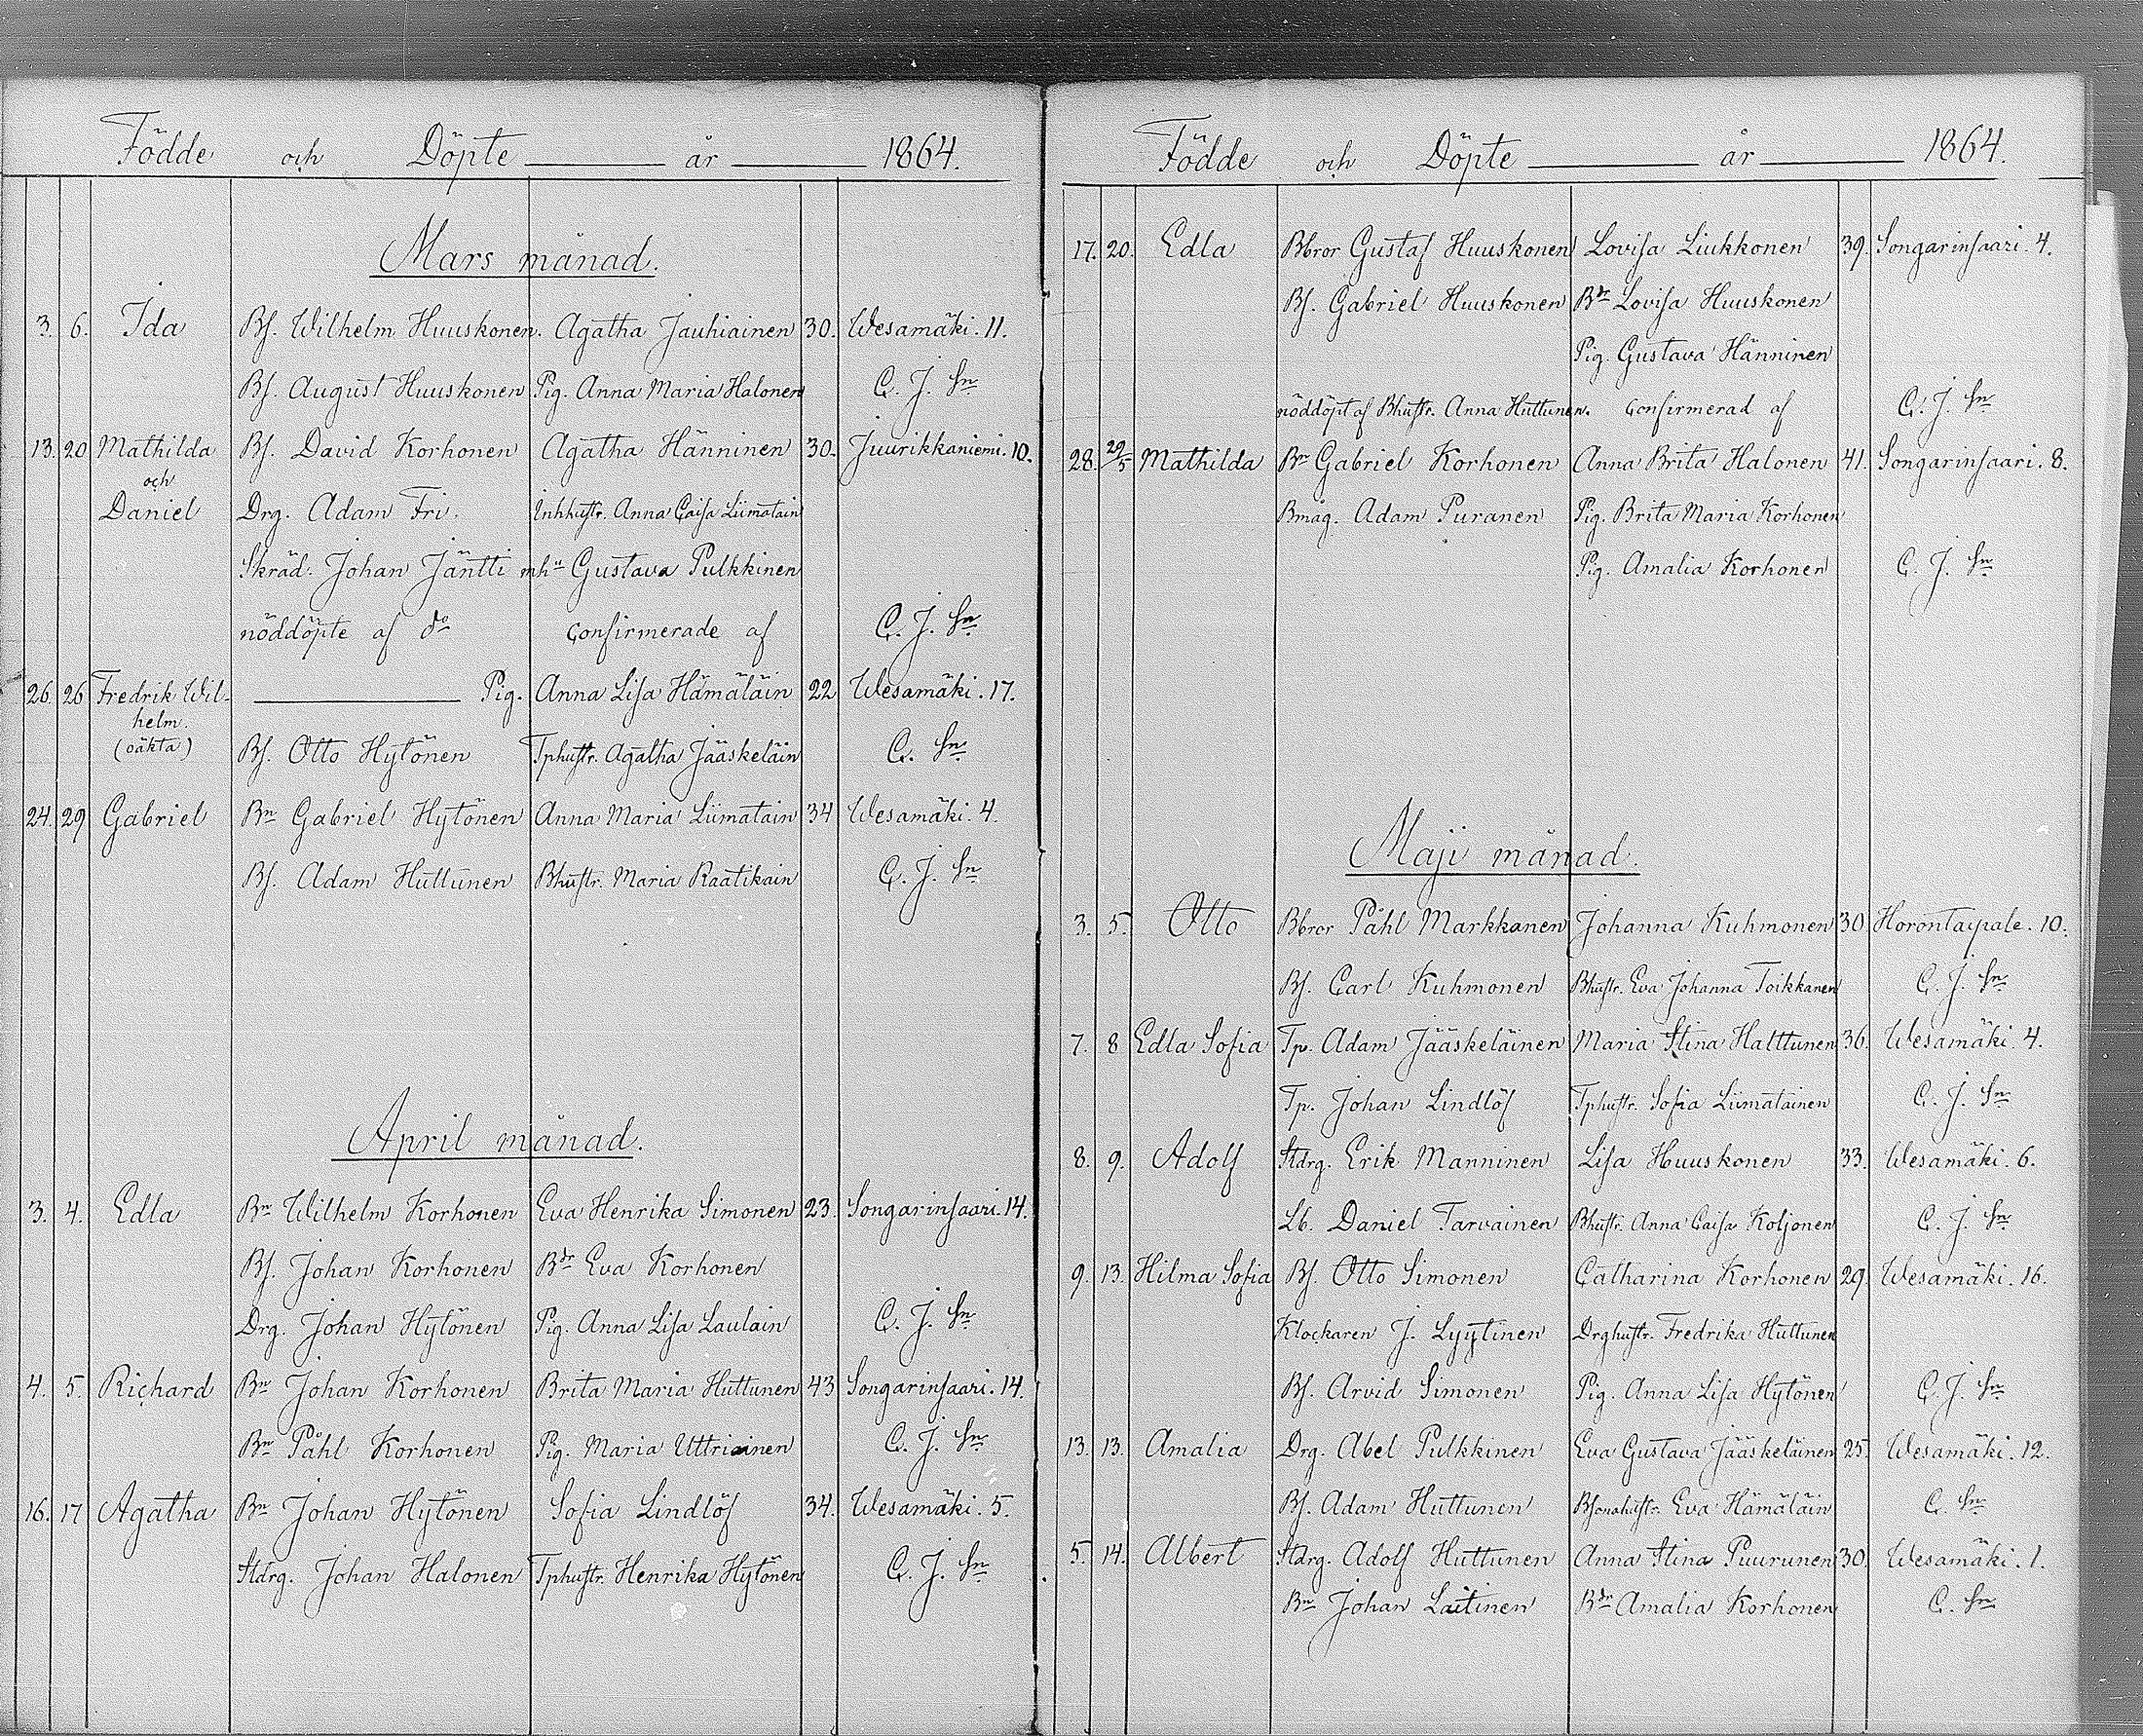 Födde och Döpte år 1864.
Mars månad.
3. 6. Ida Bs. Wilhelm Huuskonen. Agatha Jauhiainen 30. Wesamäki. 11.
Bs. August Huuskonen Pig. Anna Maria Halonen C. J. Sn
13. 20 Mathilda Bs. David Korhonen Agatha Hänninen 30. Juurikkaniemi. 10.
och
Daniel Drg. Adam Fri. Inhhustr. Anna Caisa Liimatain
Skräd. Johan Jäntti mhu Gustava Pulkkinen
nöddöpte af do confirmerade af C. J. Sn
26. 26 Fredrik Wil- Pig. Anna Lisa Hämäläin 22 Wesamäki. 17.
helm.
(oäkta) Bs. Otto Hytönen Tphustr. Agatha Jääskeläin C. Sn
24. 29 Gabriel Bn Gabriel Hytönen Anna Maria Liimatain 34 Wesamäki. 4.
Bs. Adam Huttunen Bhustr. Maria Raatikain C. J. Sn
April månad.
3. 4. Edla Bn Wilhelm Korhonen Eva Henrika Simonen 23. Songarinsaari. 14.
Bs. Johan Korhonen Bdr Eva Korhonen
Drg. Johan Hytönen Pig. Anna Lisa Laulain C. J. Sn
4. 5. Richard Bn Johan Korhonen Brita Maria Huttunen 43 Songarinsaari. 14.
Bn Påhl Korhonen Pig. Maria Uttriainen C. J. Sn
16. 17 Agatha Bn Johan Hytönen Sofia Lindlöf 34. Wesamäki. 5.
Stdrg. Johan Halonen Tphustr. Henrika Hytönen C. J. Sn
Födde och Döpte år 1864.
17. 20. Edla Bbror Gustaf Huuskonen Lovisa Liukkonen 39. Songarinsaari. 4.
Bs. Gabriel Huuskonen Bdr Lovisa Huuskonen
Pig. Gustava Hänninen
nöddöpt af Bhustr. Anna Huttunen. confirmerad af C. J. Sn
28. 29/5 Mathilda Bn Gabriel Korhonen Anna Brita Halonen 41. Songarinsaari. 8.
Bmåg. Adam Puranen Pig. Brita Maria Korhonen
Pig. Amalia Korhonen C. J. Sn
Maji månad.
3. 5. Otto Bbror Påhl Markkanen Johanna Kuhmonen 30 Horontaipale. 10.
Bs. Carl Kuhmonen Bhustr. Eva Johanna Toikkanen C. J. Sn
7. 8 Edla Sofia Tp. Adam Jääskeläinen Maria Stina Halttunen 36. Wesamäki. 4.
Tp. Johan Lindlöf Tphustr. Sofia Liimatainen C. J. Sn
8. 9. Adolf Stdrg. Erik Manninen Lisa Huuskonen 33. Wesamäki. 6.
Lb. Daniel Tarvainen Bhustr. Anna Caisa Koljonen C. J. Sn
9. 13. Hilma Sofia Bs. Otto Simonen Catharina Korhonen 29. Wesamäki. 16.
Klockaren J. Lyytinen Drghustr. Fredrika Huttunen
Bs. Arvid Simonen Pig. Anna Lisa Hytönen C. J. Sn
13. 13. Amalia Drg. Abel Pulkkinen Eva Gustava Jääskeläinen 25. Wesamäki. 12.
Bs. Adam Huttunen Bsonahustr. Eva Hämäläin C. Sn
5. 14. Albert Stdrg. Adolf Huttunen Anna Stina Puurunen 30. Wesamäki. 1.
Bn Johan Laitinen Bdr Amalia Korhonen C. Sn